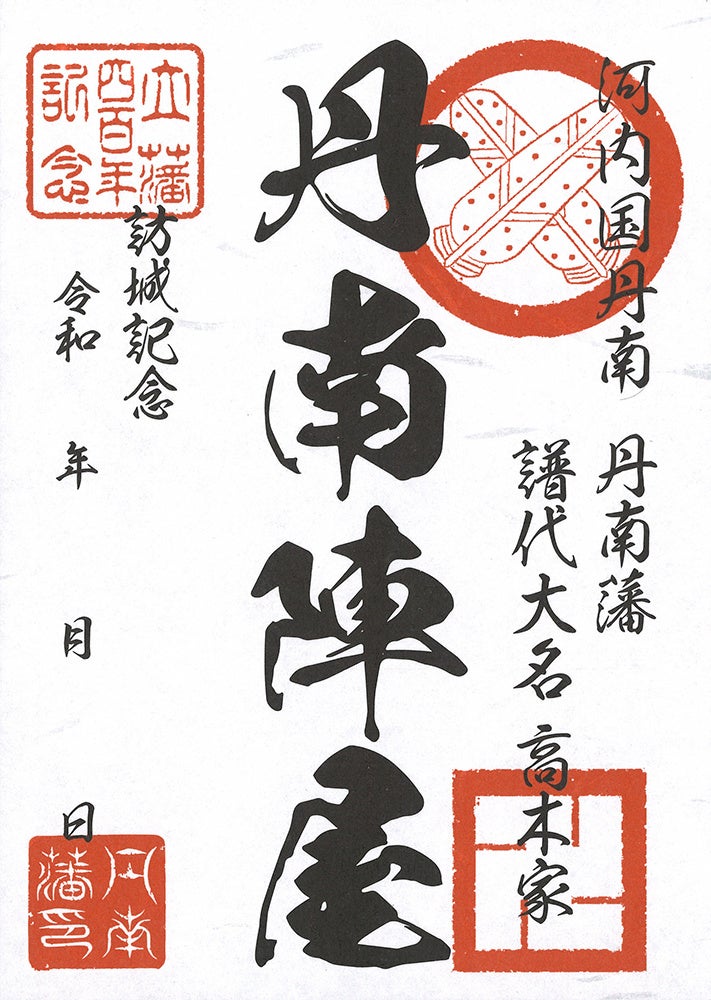 河内国丹南　丹南藩
譜代大名　高木家
丹南陣屋
立藩
四百年
記念
訪城記念
令和　年　月　日
丹南
藩印